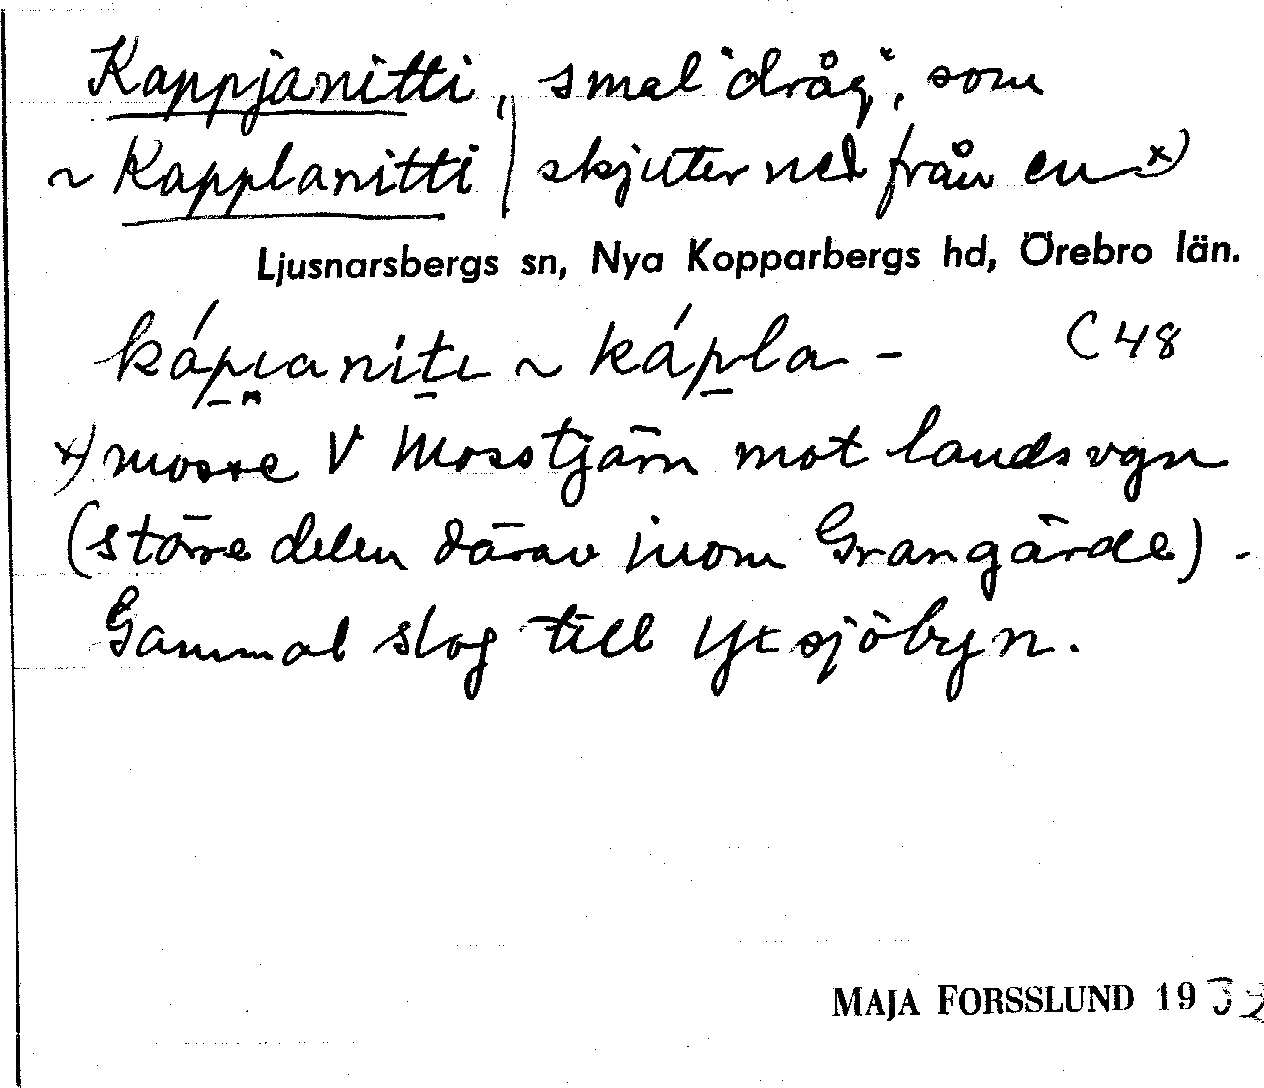 Kappjanitti, smal "dråg", som
~ Kapplanitti | skjuter ned från en x)
Ljusnarsbergs sn, Nya Kopparbergs hd, Örebro län.
kápi̯aniti ~ kápla - C 48
x) mosse V Mosstjärn mot landsvgn
(större delen därav inom Grangärde) -
Gammal slog till Yxsjöbyn.
MAJA FORSSLUND 19